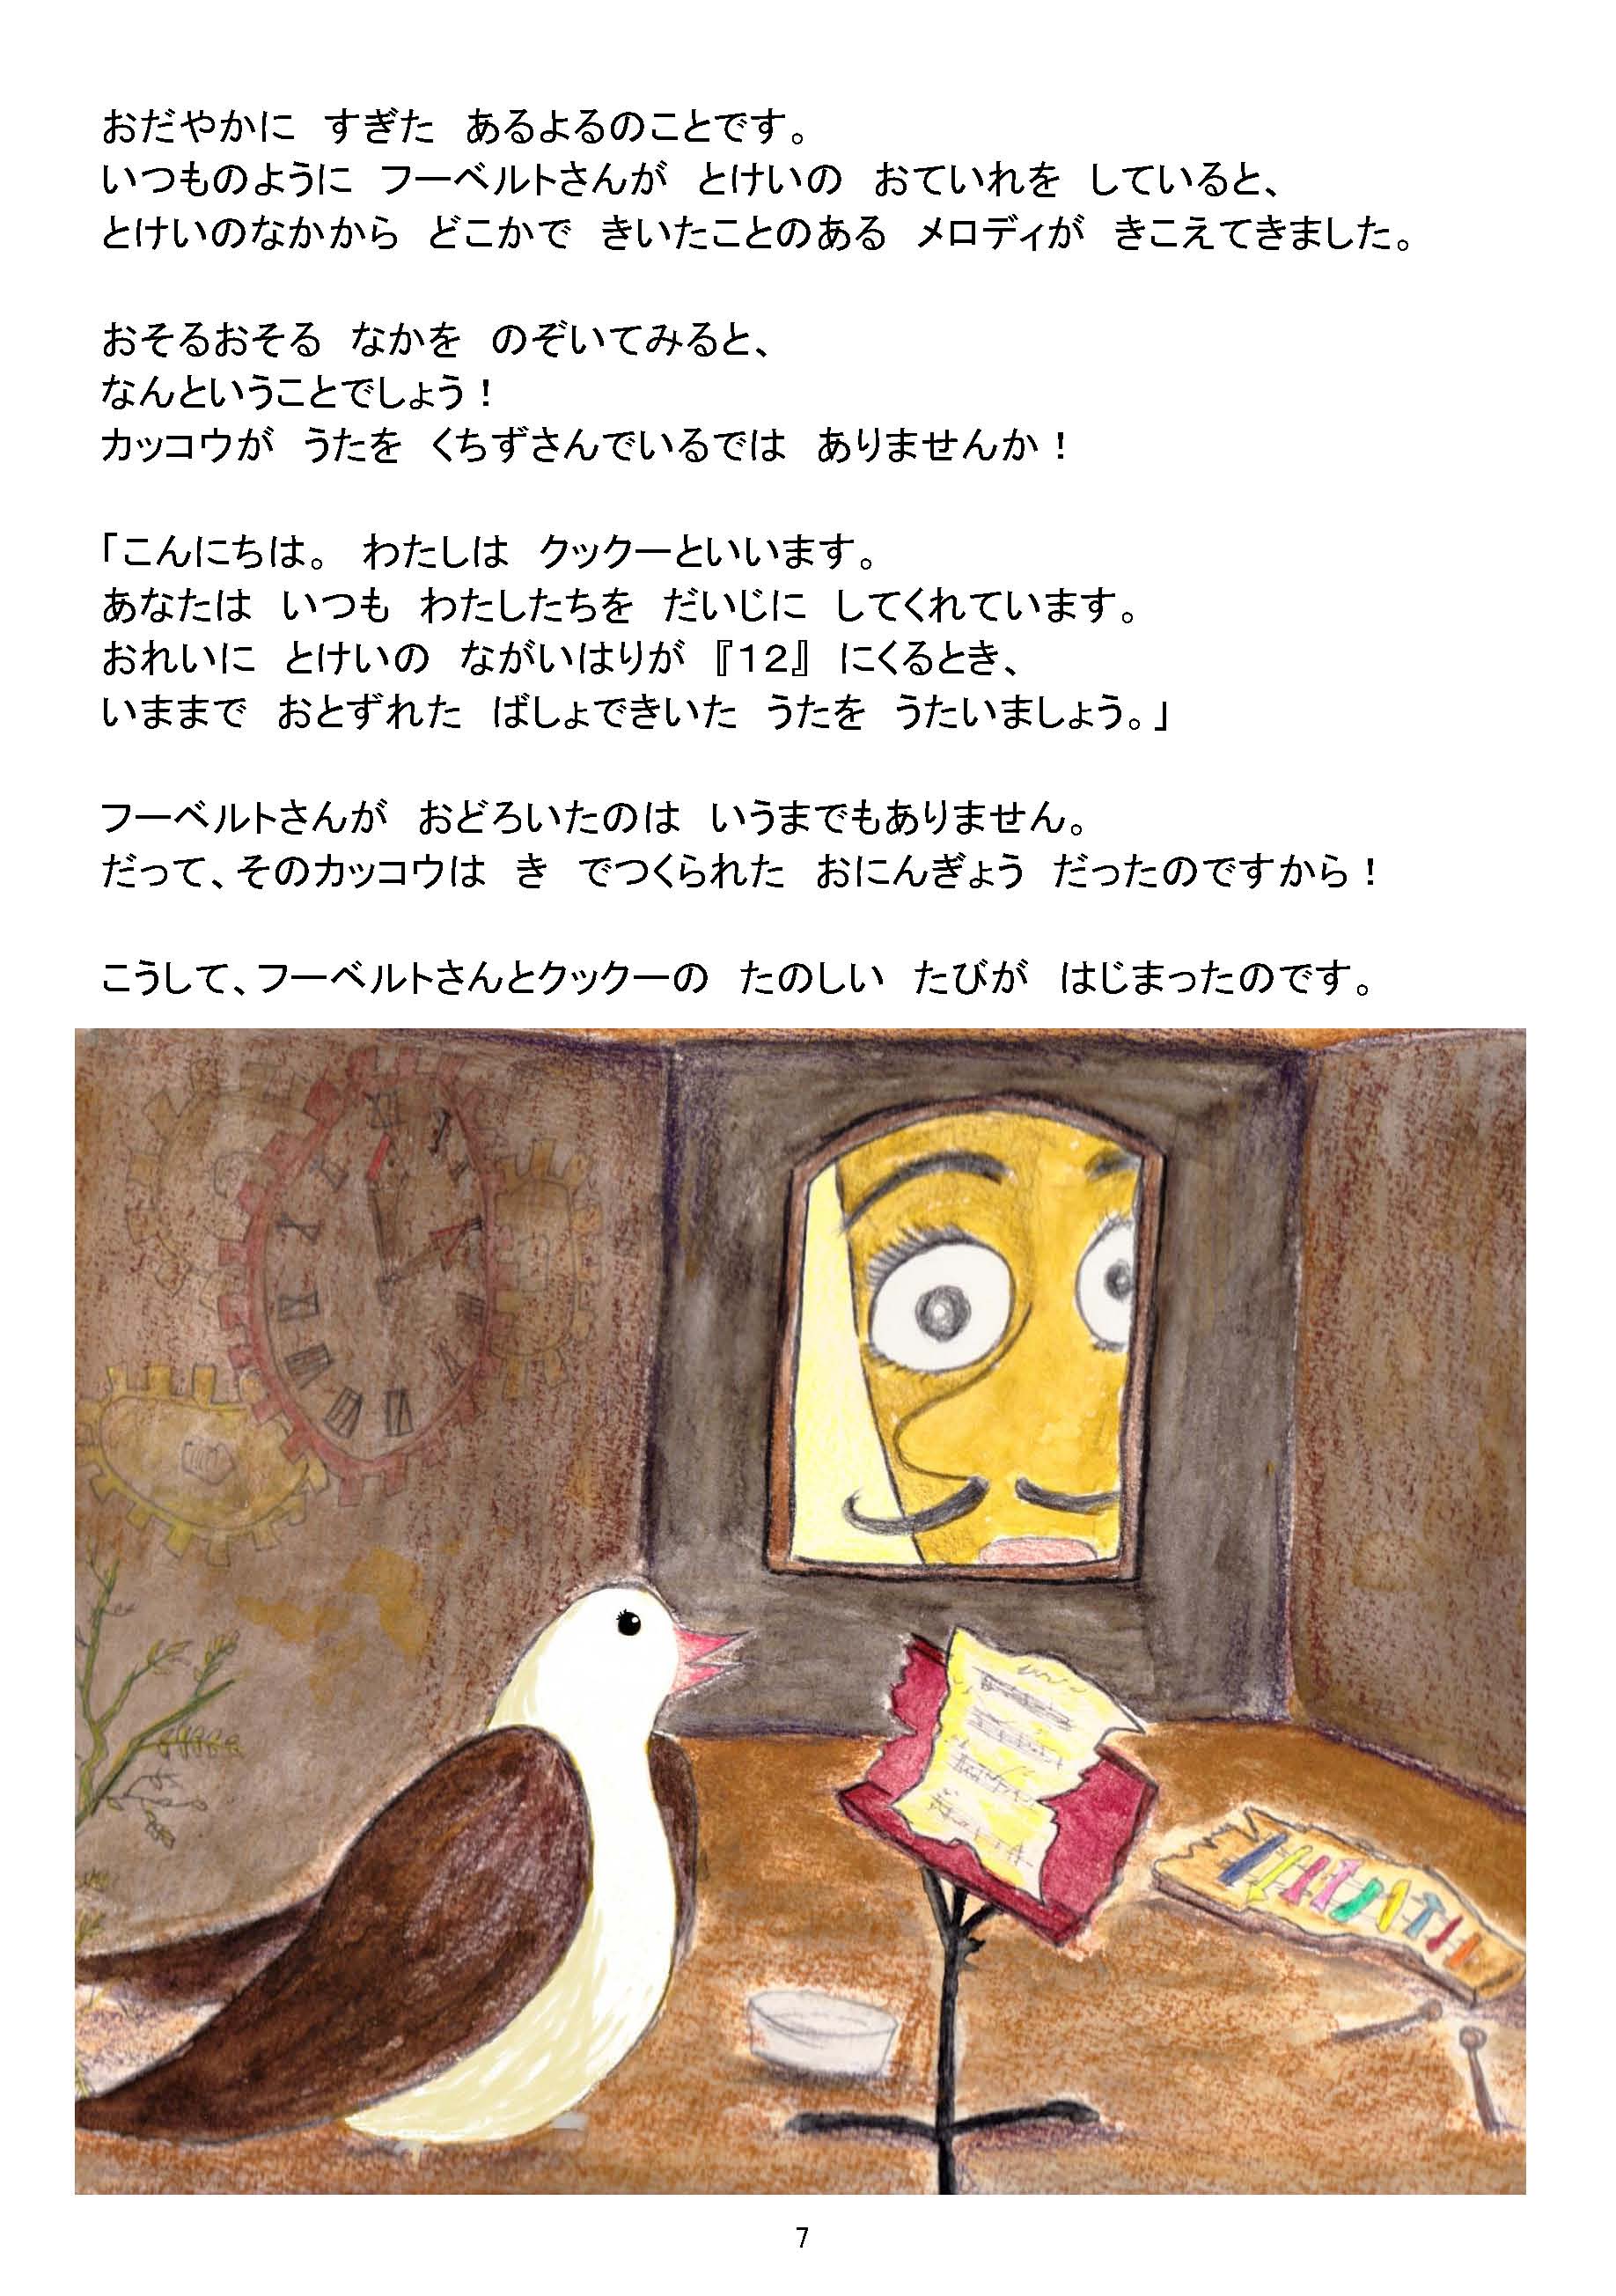 おだやかに　すぎた　あるよるのことです。
いつものように　フーベルトさんが　とけいの　おていれを　していると、
とけいのなかから　どこかで　きいたことのある　メロディが　きこえてきました。
おそるおそる　なかを　のぞいてみると、
なんということでしょう！
カッコウが　うたを　くちずさんでいるでは　ありませんか！
「こんにちは。　わたしは　クックーといいます。
あなたは　いつも　わたしたちを　だいじに　してくれています。
おれいに　とけいの　ながいはりが　『12』　にくるとき、
いままで　おとずれた　ばしょできいた　うたを　うたいましょう。」
フーベルトさんが　おどろいたのは　いうまでもありません。
だって、そのカッコウは　き　でつくられた　おにんぎょう　だったのですから！
こうして、フーベルトさんとクックーの　たのしい　たびが　はじまったのです。
7